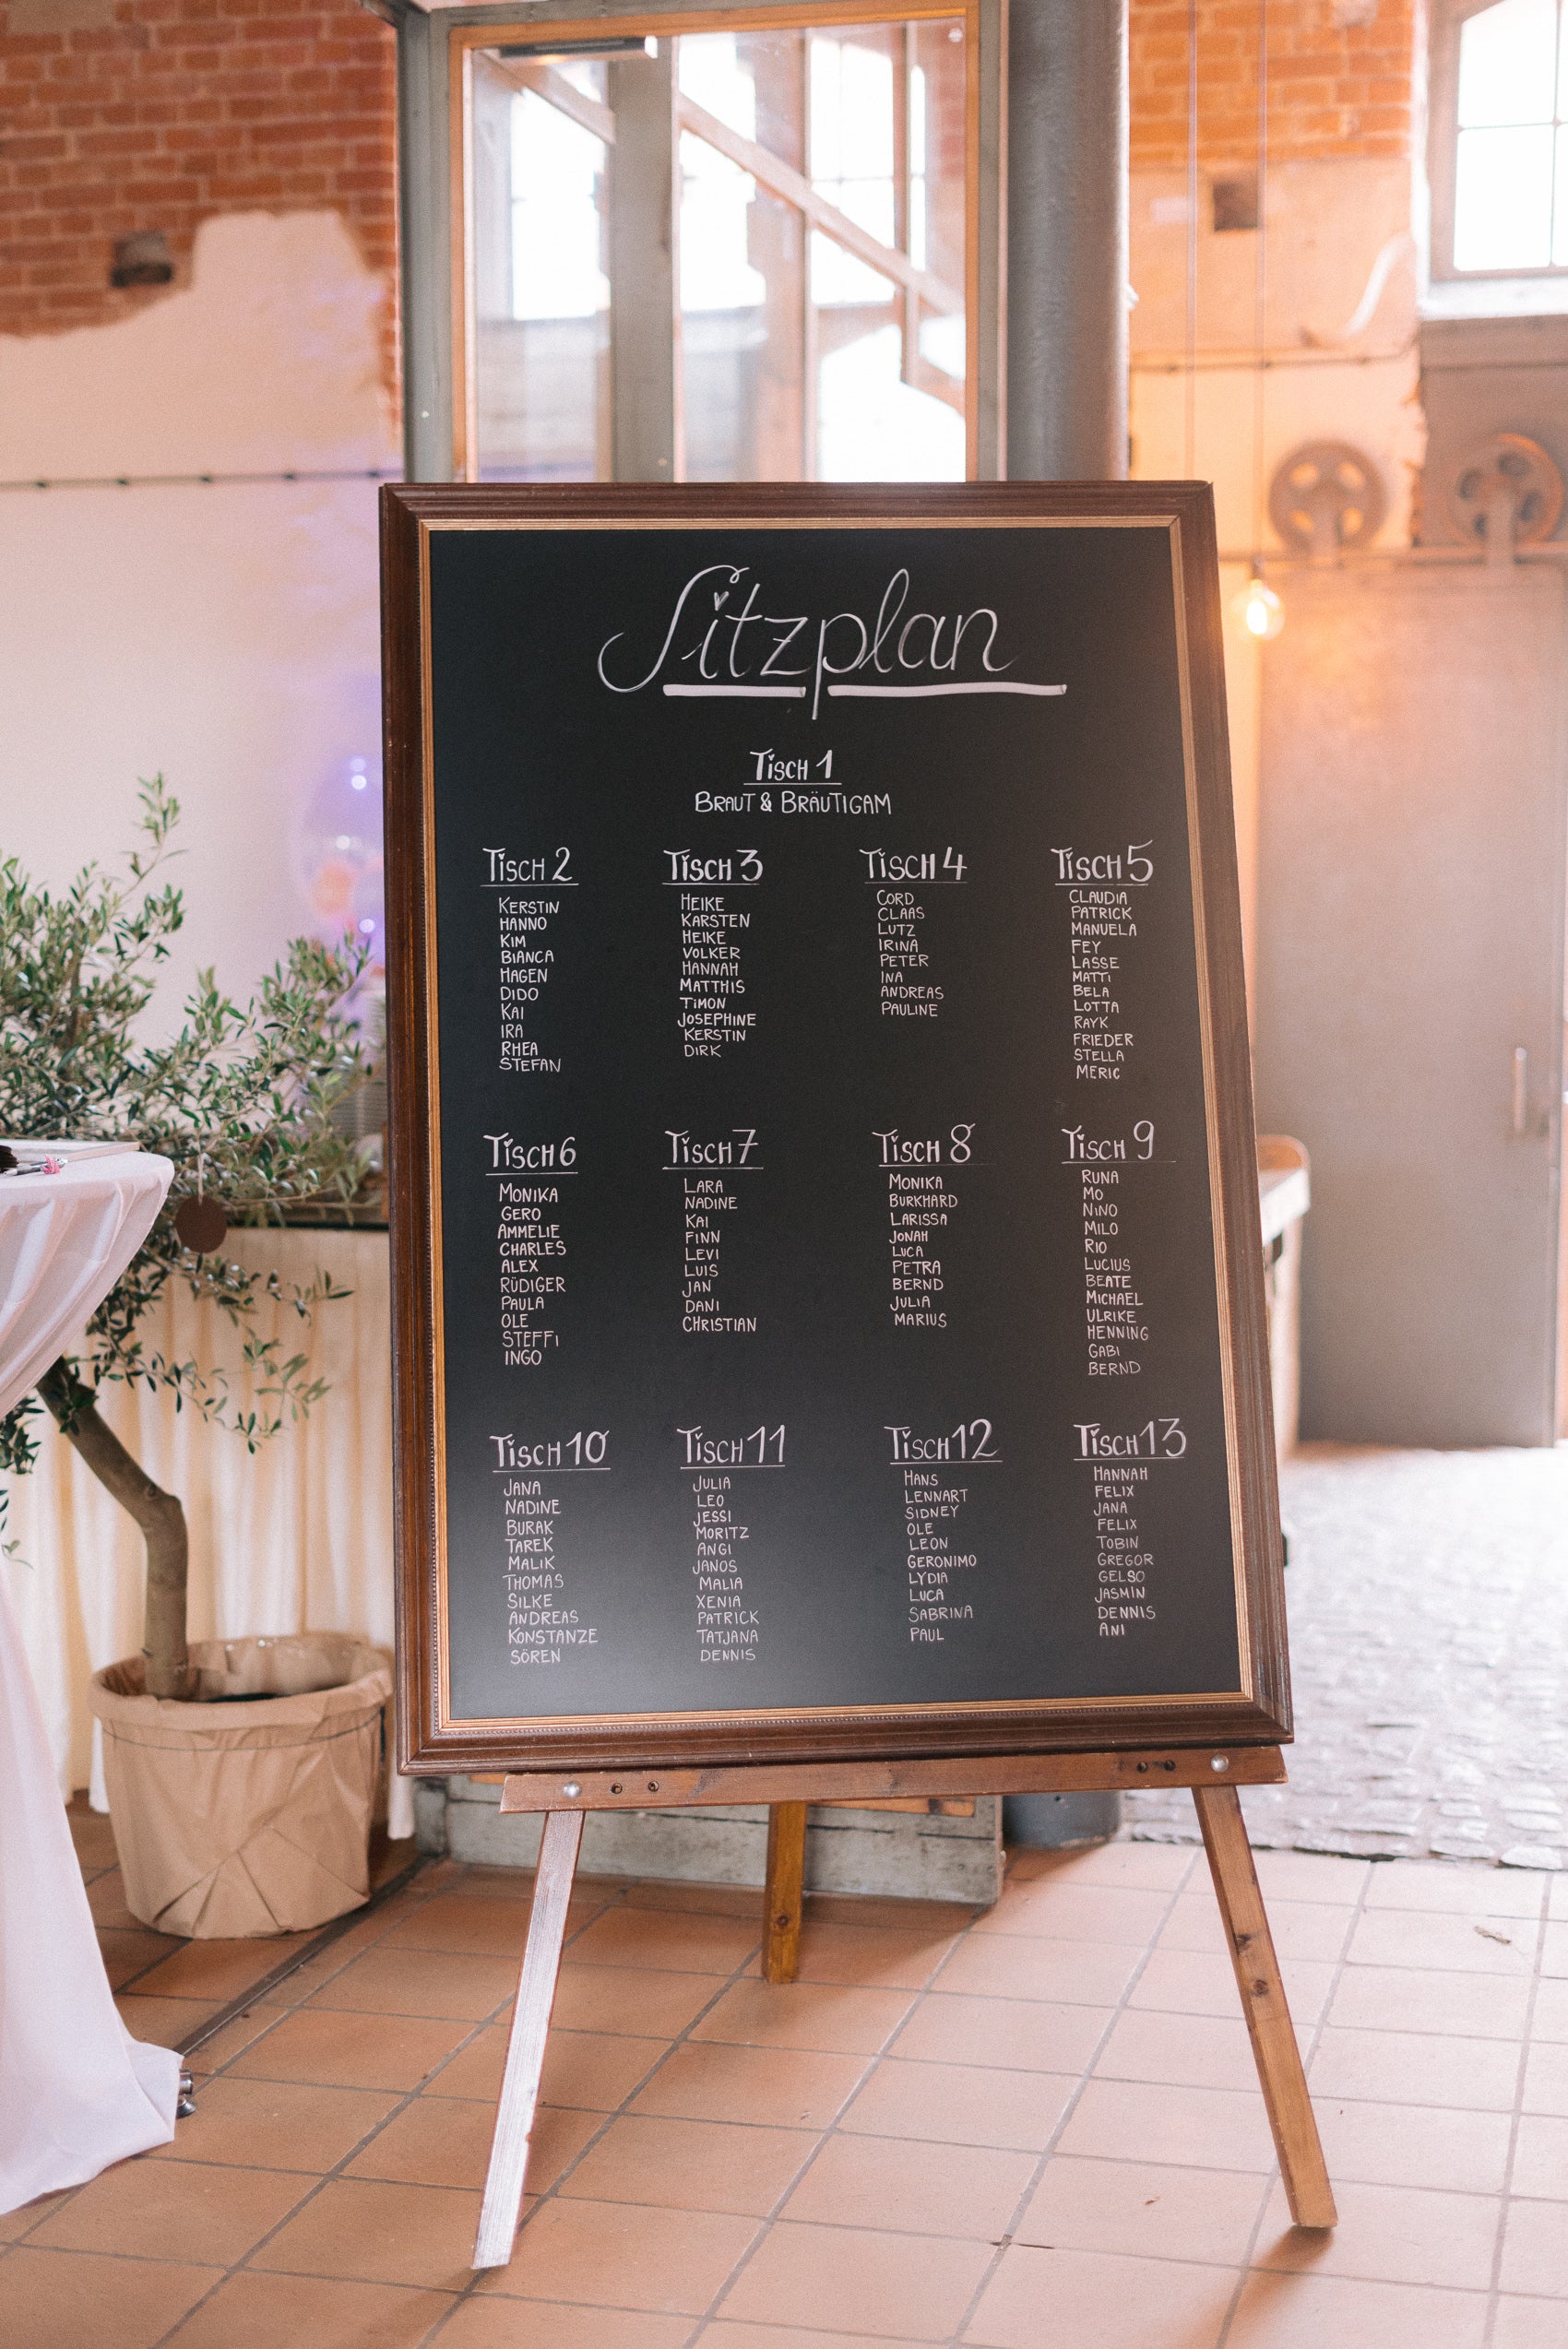 Sitzplan
Tisch 1
Braut & Bräutigam
Tisch 2
Kerstin
Hanno
Kim
Bianca
Hagen
Dido
Kai
Ira
Rhea
Stefan
Tisch 3
Heike
Karsten
Heike
Volker
Hannah
Matthis
Timon
Josephine
Kerstin
Dirk
Tisch 4
Cord
Claas
Lutz
Irina
Peter
Ina
Andreas
Pauline
Tisch 5
Claudia
Patrick
Manuela
Fey
Lasse
Matti
Bela
Lotta
Rayk
Frieder
Stella
Meric
Tisch 6
Monika
Gero
Ammelie
Charles
Alex
Rüdiger
Paula
Ole
Steffi
Ingo
Tisch 7
Lara
Nadine
Kai
Finn
Levi
Luis
Jan
Dani
Christian
Tisch 8
Monika
Burkhard
Larissa
Jonah
Luca
Petra
Bernd
Julia
Marius
Tisch 9
Runa
Mo
Nino
Milo
Rio
Lucius
Beate
Michael
Ulrike
Henning
Gabi
Bernd
Tisch 10
Jana
Nadine
Burak
Tarek
Malik
Thomas
Silke
Andreas
Konstanze
Sören
Tisch 11
Julia
Leo
Jessi
Moritz
Angi
Janos
Malia
Xenia
Patrick
Tatjana
Dennis
Tisch 12
Hans
Lennart
Sidney
Ole
Leon
Geronimo
Lydia
Luca
Sabrina
Paul
Tisch 13
Hannah
Felix
Jana
Felix
Tobin
Gregor
Gelso
Jasmin
Dennis
Ani